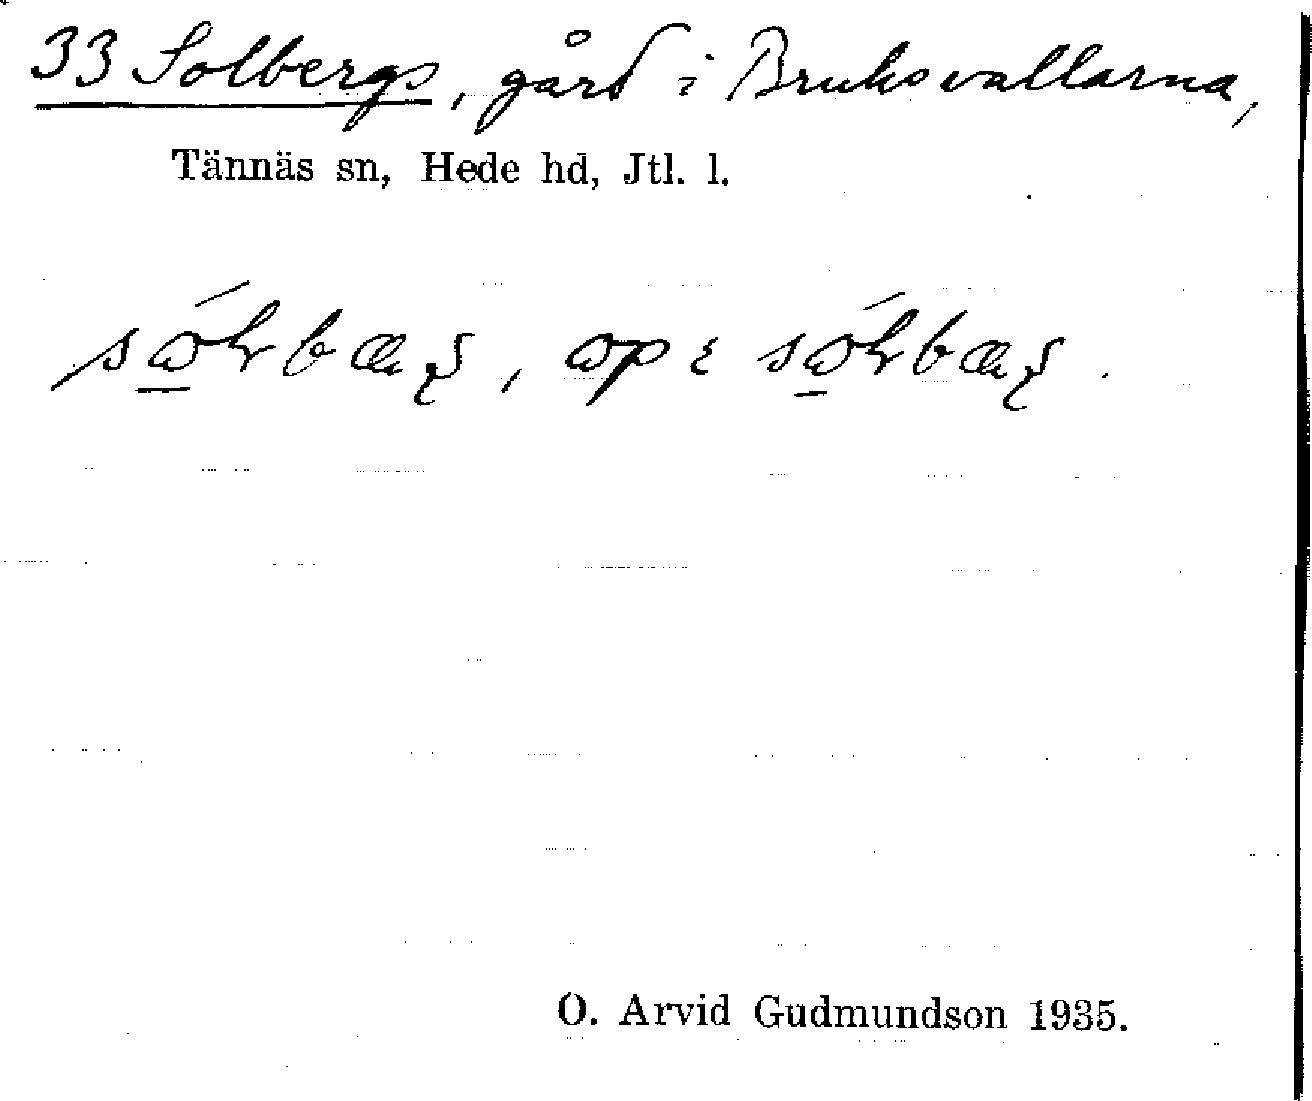 33 Solbergs, gård i Bruksvallarna,
Tännäs sn, Hede hd, Jtl. l.
O. Arvid Gudmundson 1935.